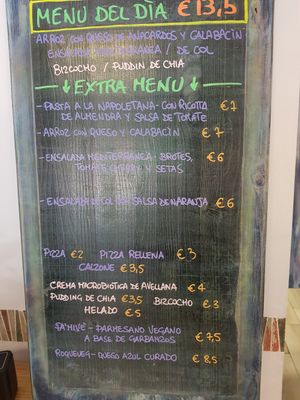 MENÚ DEL DÍA €13,5
ARROZ CON QUESO DE ANACARDOS Y CALABACÍN
ENSALADA / DE COL
BIZCOCHO / PUDDIN DE CHIA
EXTRA MENU
- PASTA A LA NAPOLETANA - CON RICOTTA €7
DE ALMENDRA Y SALSA DE TOMATE
- ARROZ CON QUESO Y CALABACÍN €7
- ENSALADA MEDITERRANEA - BROTES, €6
TOMATE CHERRY Y SETAS
- ENSALADA DE COL CON SALSA DE NARANJA €6
PIZZA €2 PIZZA RELLENA €3
CALZONE €3,5
CREMA MACROBIOTICA DE AVELLANA €4
PUDDING DE CHIA €3,5 BIZCOCHO €3
HELADO €5
PARMESANO VEGANO
A BASE DE GARBANZOS €7,5
- QUESO AZUL CURADO €8,5